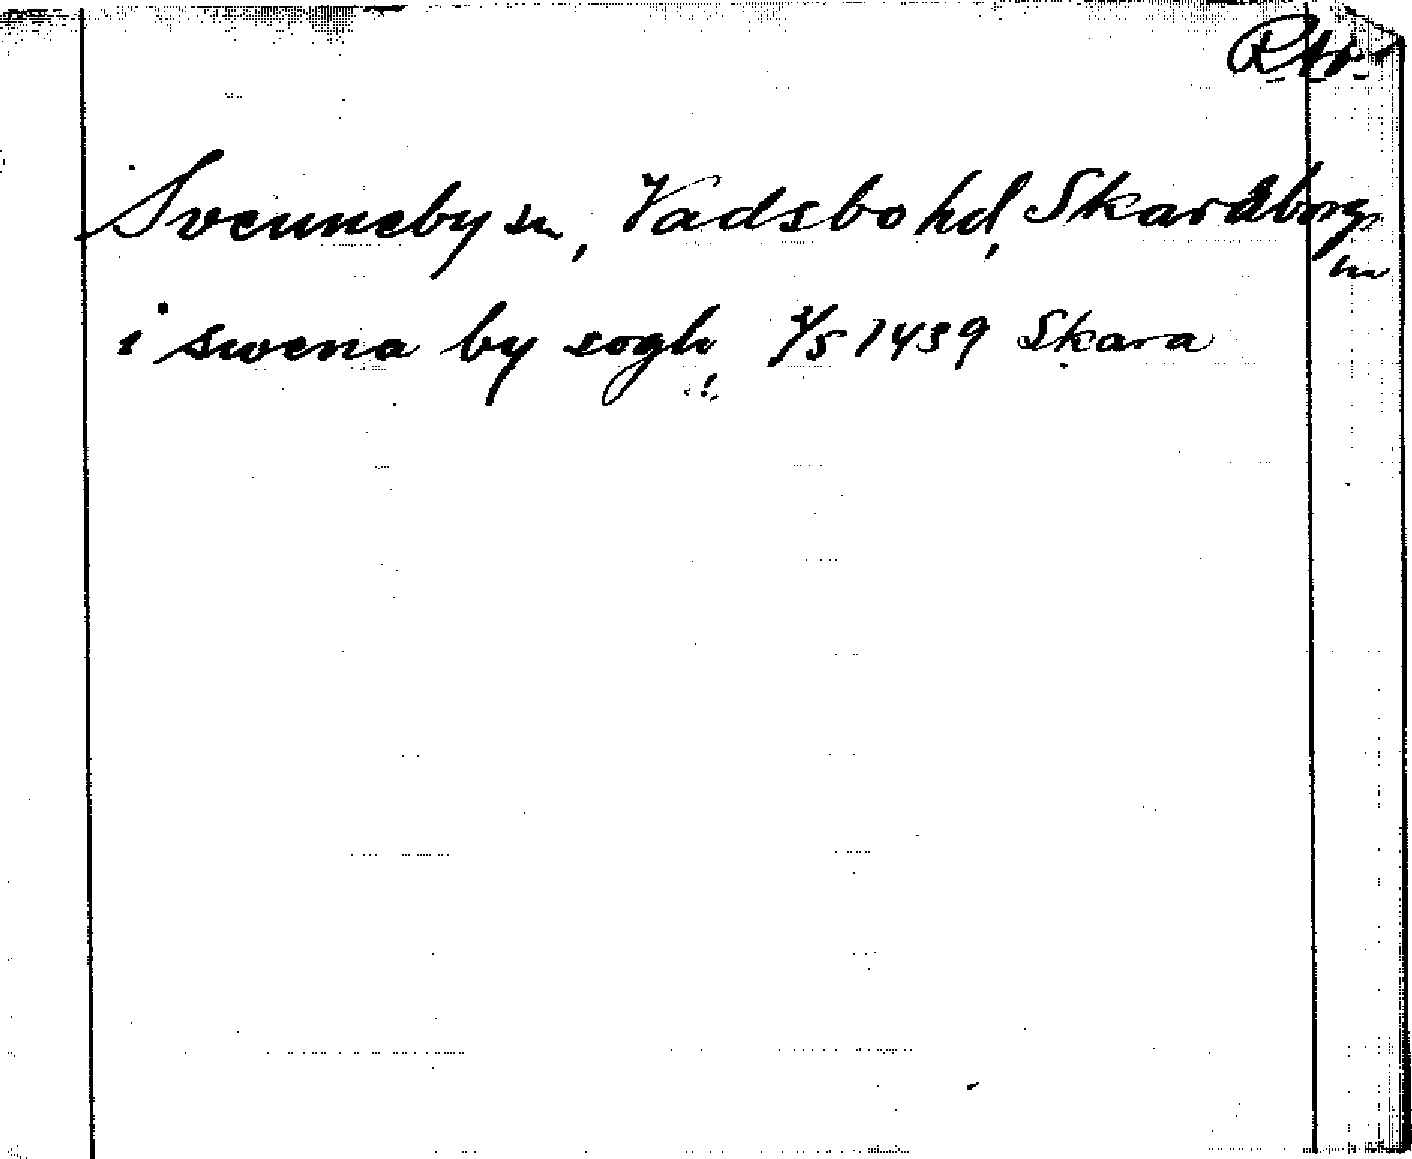 Svenneby sn, Vadsbo hd, Skaraborgs
i swena by sogh 1439 Skara